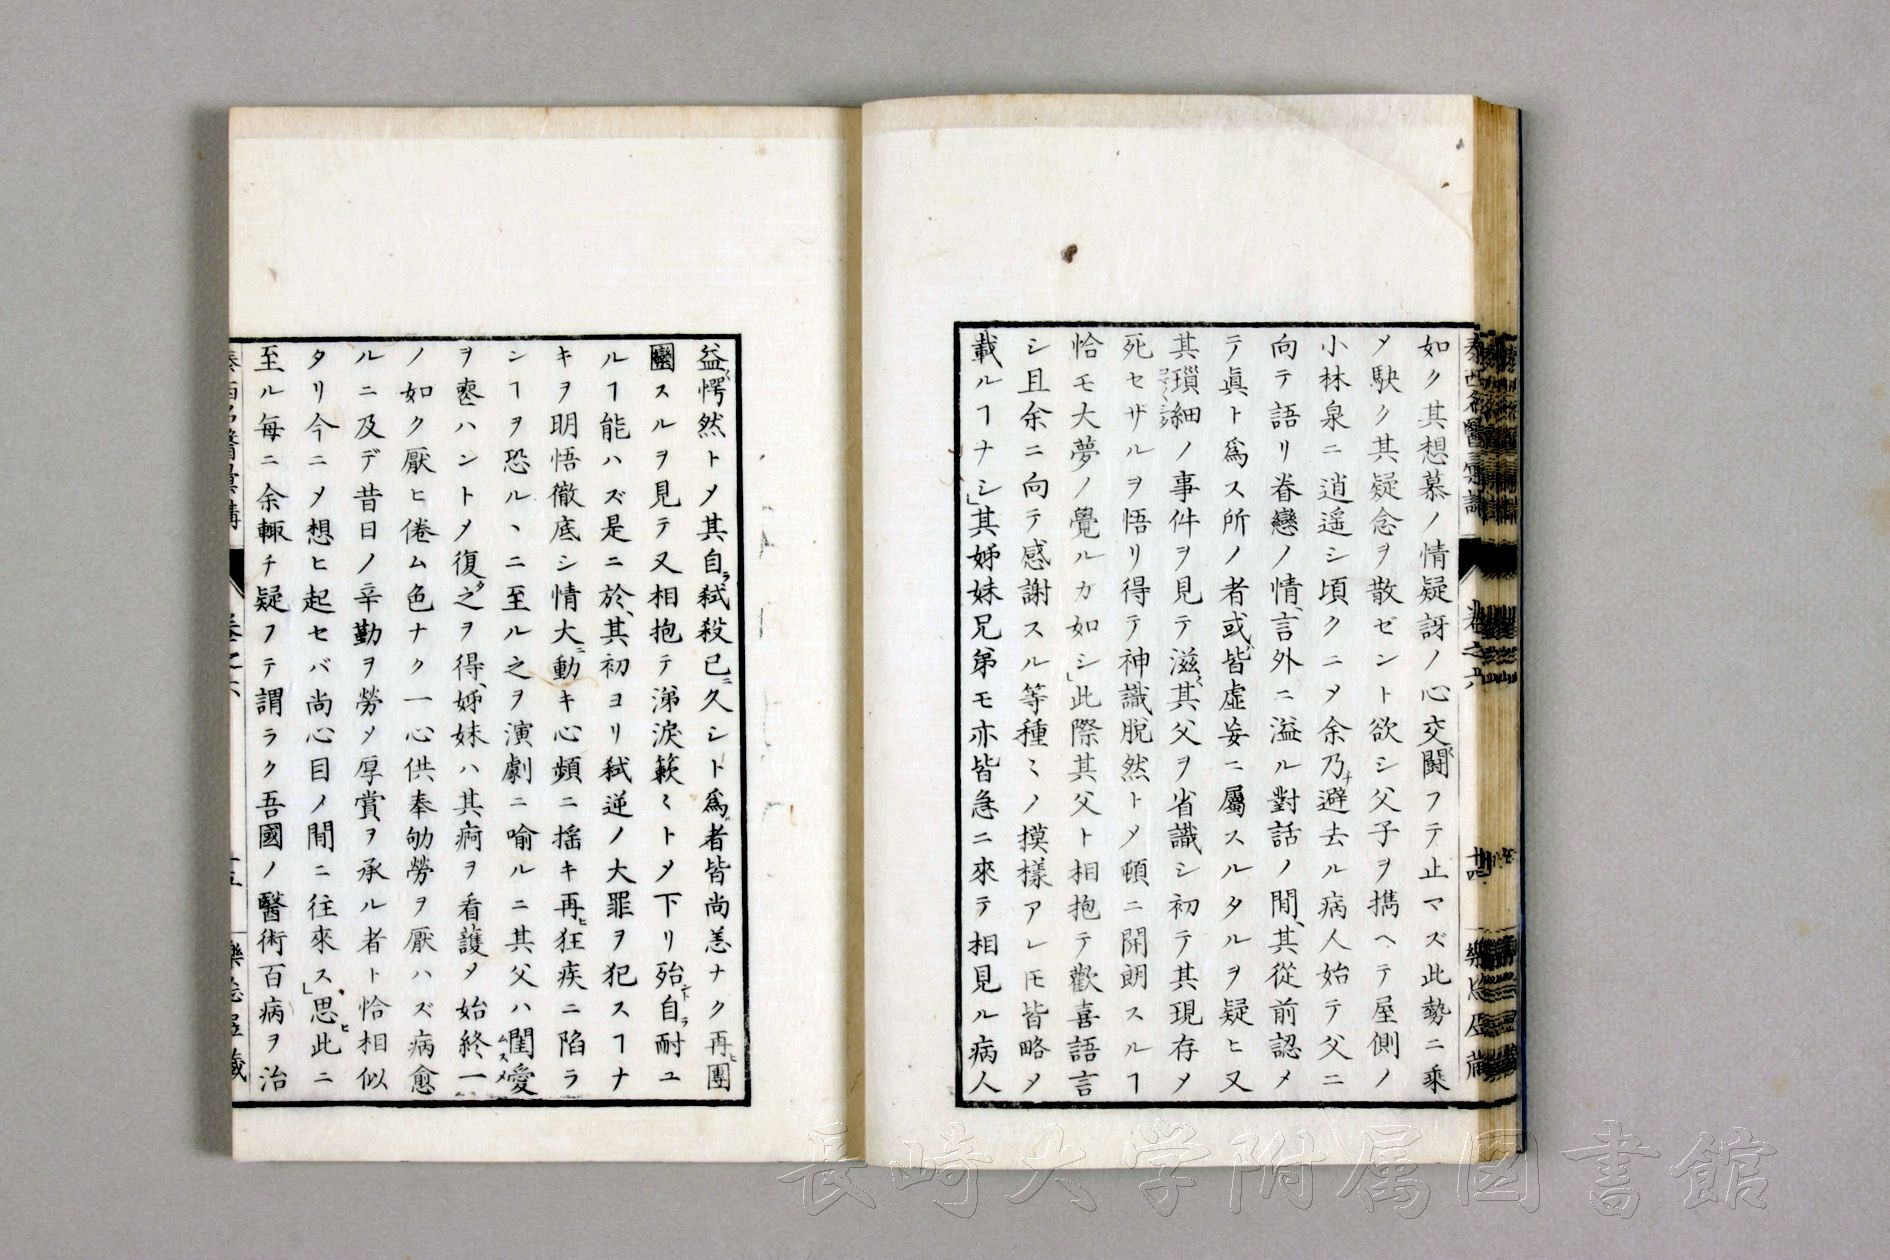 如ク其想慕ノ情疑訝ノ心交闘フテ止マズ此勢ニ乘
メ駃ク其疑念ヲ散ゼント欲シ父子ヲ携ヘテ屋側ノ
小林泉ニ逍遥シ頃クニメ余乃避去ル病人始テ父ニ
向テ語リ眷戀ノ情、言外ニ溢ル對話ノ間、其從前認メ
テ眞ト爲ス所ノ者或皆虛妄ニ屬スルタルヲ疑ヒ又
其瑣細ノ事件ヲ見テ滋其父ヲ省識シ初テ其現存メ
死セザルヲ悟リ得テ神識脱然トメ頓ニ開朗スルヿ
恰モ大夢ノ覺ルガ如シ」此際其父ト相抱テ歡喜語言
シ且余ニ向テ感謝スル等種〻ノ摸樣アレ𪜈皆略メ
載ルヿナシ」其姊妹兄弟モ亦皆急ニ來テ相見ル病人
泰西名醫彙講
卷之六
十四
益愕然トメ其自ラ弑殺已ニ久シト爲者皆尚恙ナク再ヒ團
圞スルヲ見テ又相抱テ涕淚簌〻トメ下リ殆ト自ラ耐ユ
ルヿ能ハズ是ニ於、其初ヨリ弑逆ノ大罪ヲ犯スヿナ
キヲ明悟徹底シ情大ニ動キ心頻ニ搖キ再ヒ狂疾ニ陷ラ
ンヿヲ恐ルヽニ至ル之ヲ演劇ニ喻ルニ其父ハ閨愛
ヲ䘮ハントメ復之ヲ得、姊妹ハ其痾ヲ看護メ始終一
ノ如ク厭ヒ倦ム色ナク一心供奉劬勞ヲ厭ハズ病愈
ルニ及デ昔日ノ辛勤ヲ勞メ厚賞ヲ承ル者ト恰相似
タリ今ニメ想ヒ起セバ尚心目ノ間ニ往來ス」思ヒ此ニ
至ル毎ニ余輙チ疑フテ謂ラク吾國ノ醫術百病ヲ治
長崎大学附属図書館